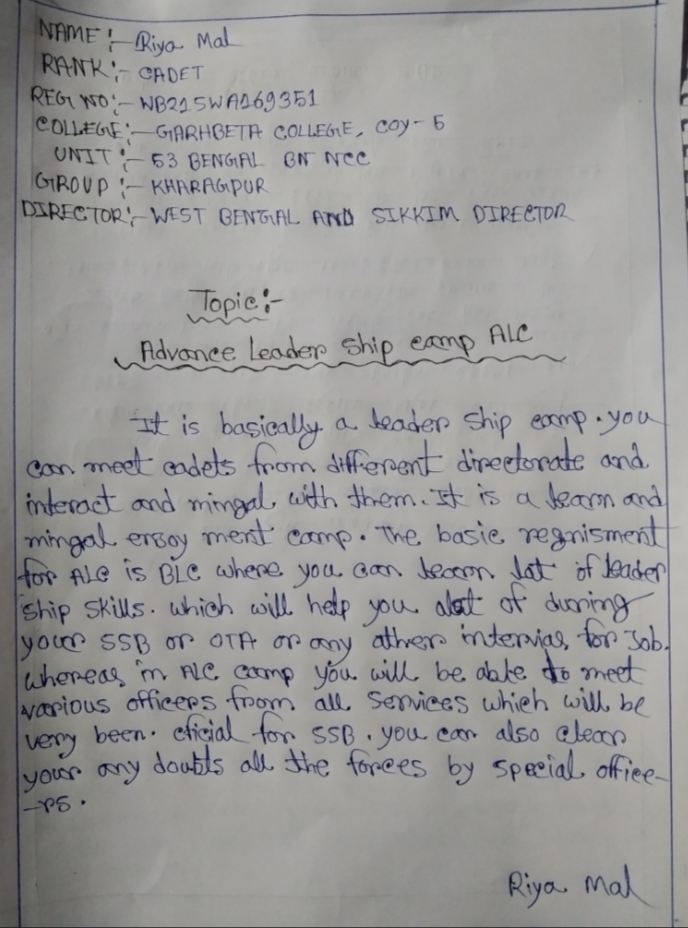 NAME:- Riya Mal
RANK:- CADET
REG NO:- WB21SWA169351
COLLEGE:- GARHBETA COLLEGE, COY-5
UNIT:- 53 BENGAL BN NCC
GROUP:- KHARAGPUR
DIRECTOR:- WEST BENGAL AND SIKKIM DIRECTOR
Topic:-
Advance Leader Ship camp ALC
It is basically a leader ship camp. you
can meet cadets from different directorate and
interact and mingal with them. It is a learn and
mingal ensoy ment camp. The basic regnisment
for ALC is BLC where you can learn lot of leader
ship skills. which will help you alot of during
your SSB or OTA or any other intervias for Job.
whereas in ALC camp you will be able to meet
various officers from all services which will be
very been. eficial for SSB. you can also clear
your any doubts all the forces by special office-
-rs.
Riya Mal